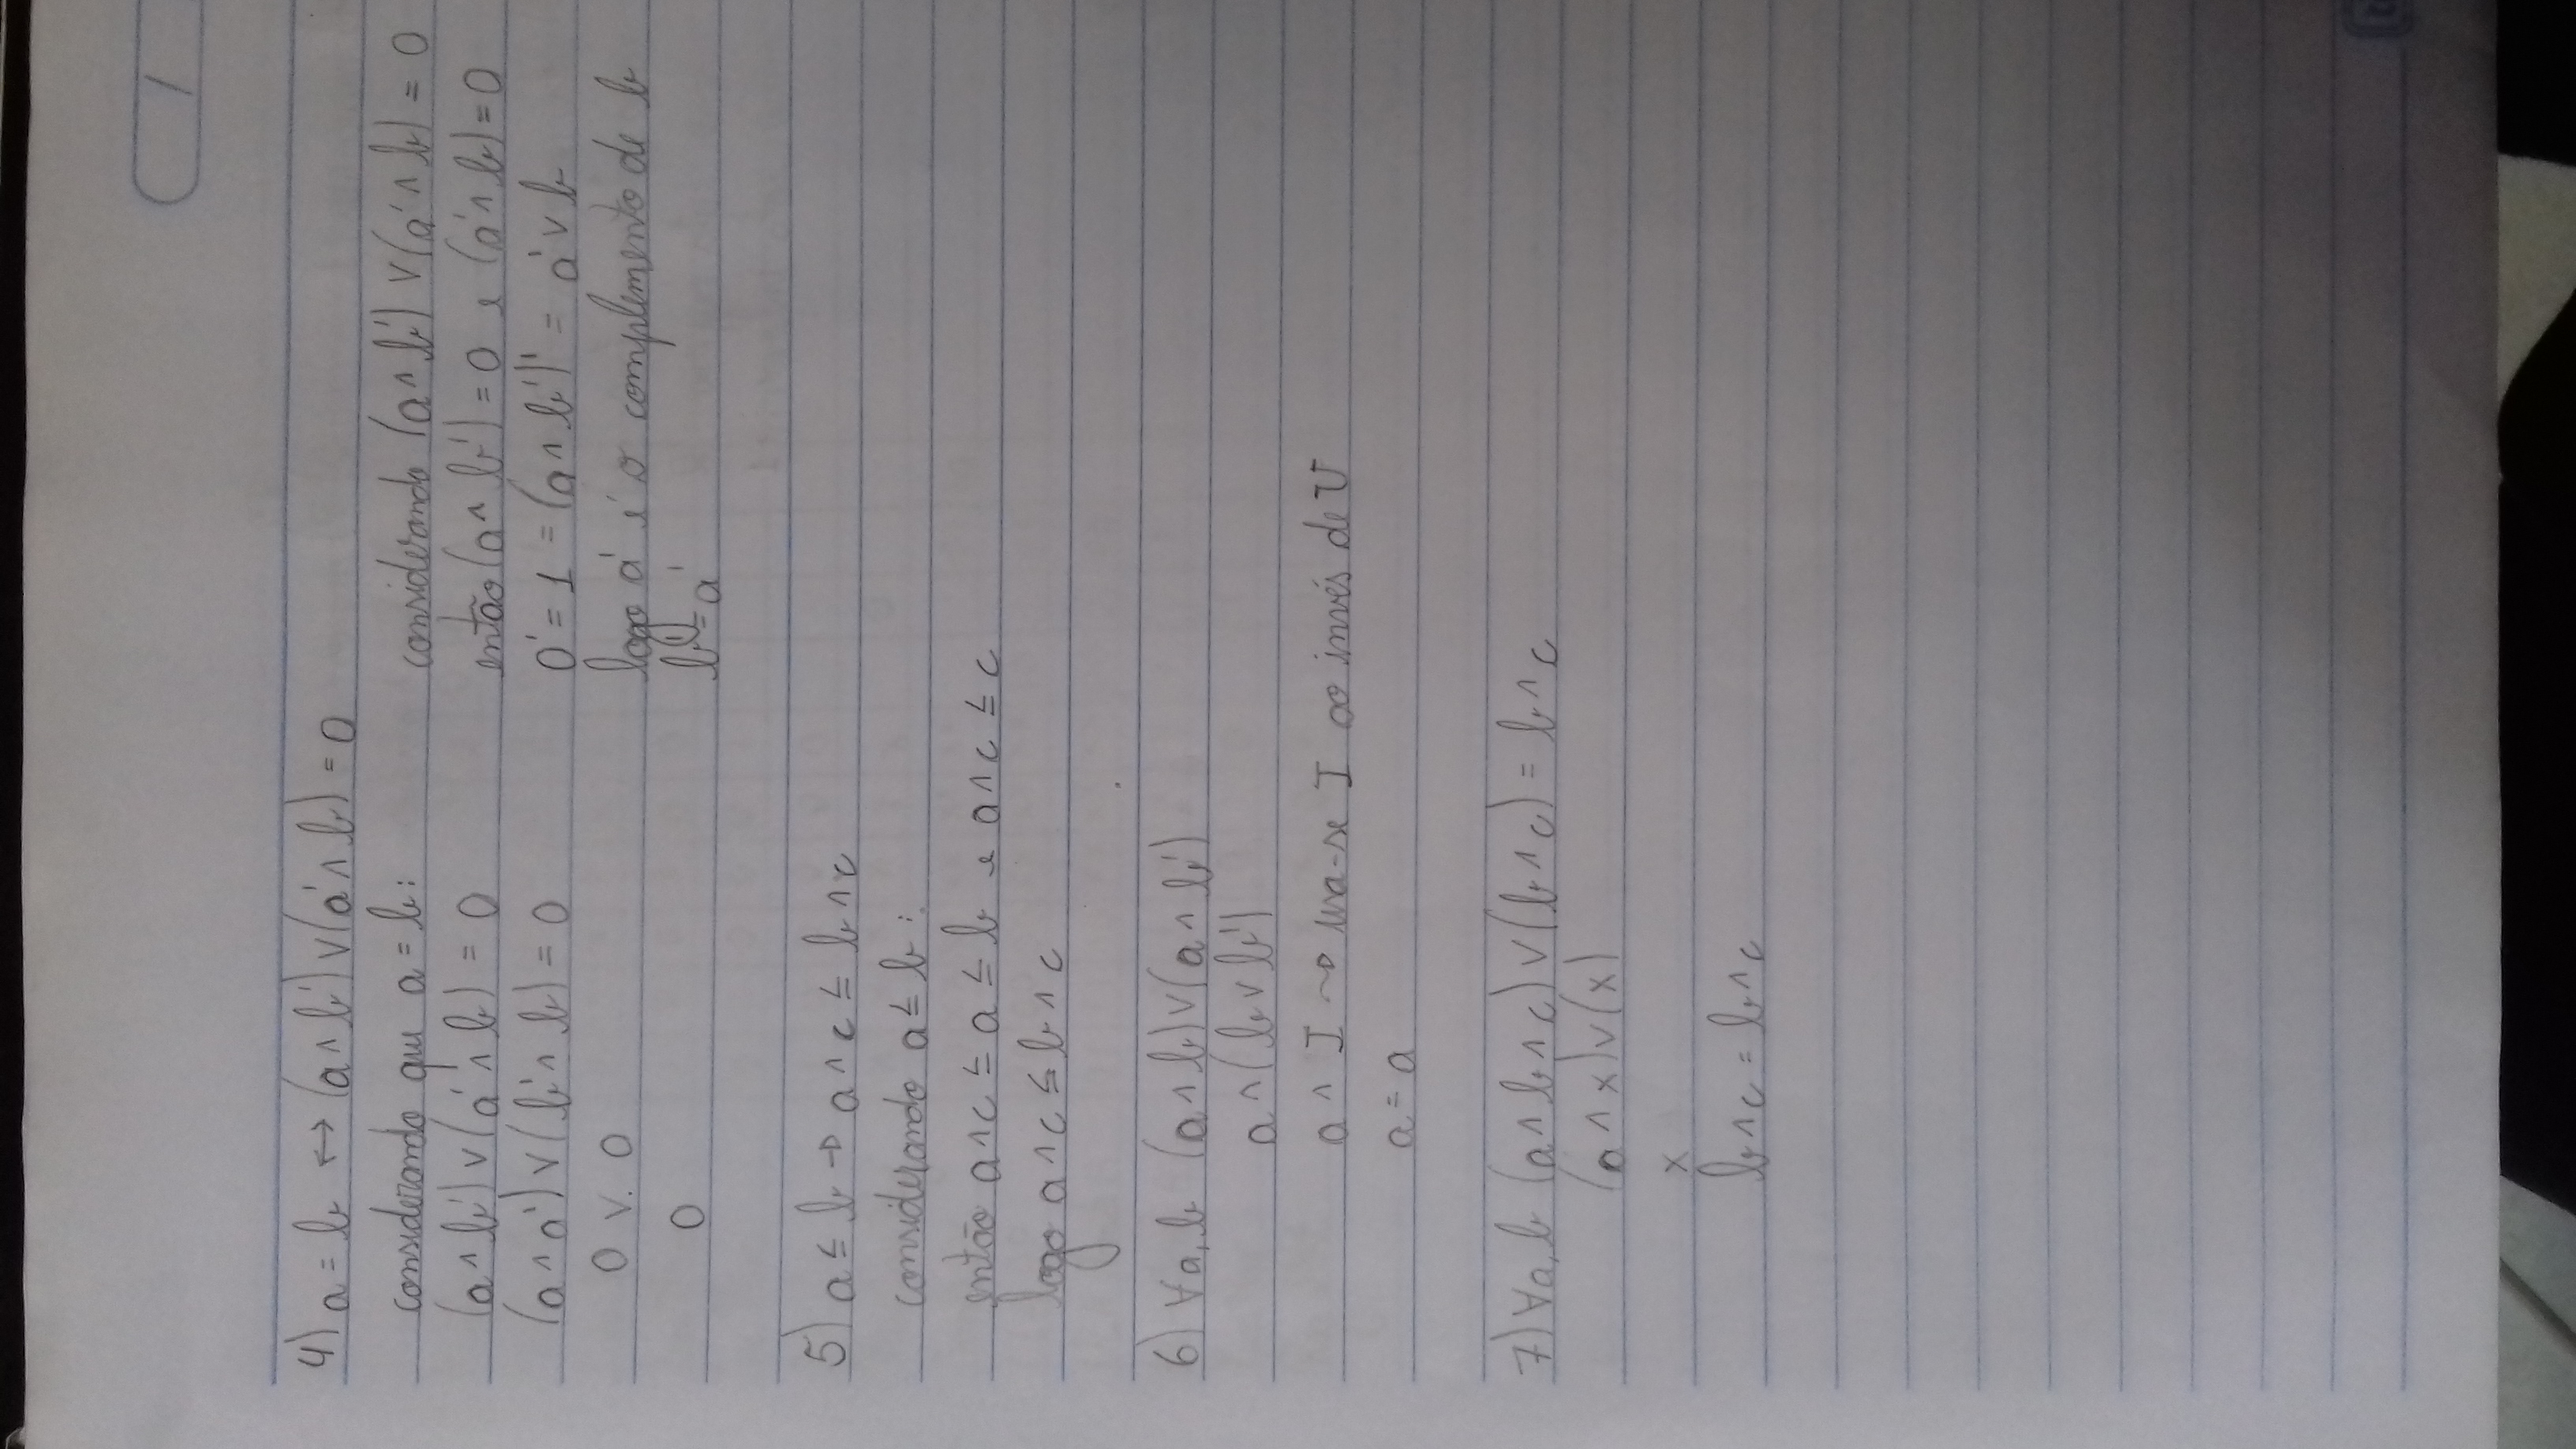 4) a = b ↔ (a ∧ b') ∨ (a' ∧ b) = 0
considerando que a = b:
(a ∧ b') ∨ (a' ∧ b) = 0
(a ∧ a') ∨ (b' ∧ b) = 0
0 ∨. 0
0
considerando (a ∧ b') ∨ (a' ∧ b) = 0
então (a ∧ b') = 0 e (a' ∧ b) = 0
0' = 1 = (a ∧ b')' = a' ∨ b
logo a' é o complemento de b
b' = a'
5) a ≤ b → a ∧ c ≤ b ∧ c
considerando a ≤ b :
então a ∧ c ≤ a ≤ b e a ∧ c ≤ c
logo a ∧ c ≤ b ∧ c
6) ∀a, b (a ∧ b) ∨ (a ∧ b')
a ∧ (b ∨ b')
a ∧ I ~> usa-se I ao invés de U
a = a
7) ∀a, b (a ∧ b ∧ c) ∨ (b ∧ c) = b ∧ c
(a ∧ x) ∨ (x)
x
b ∧ c = b ∧ c